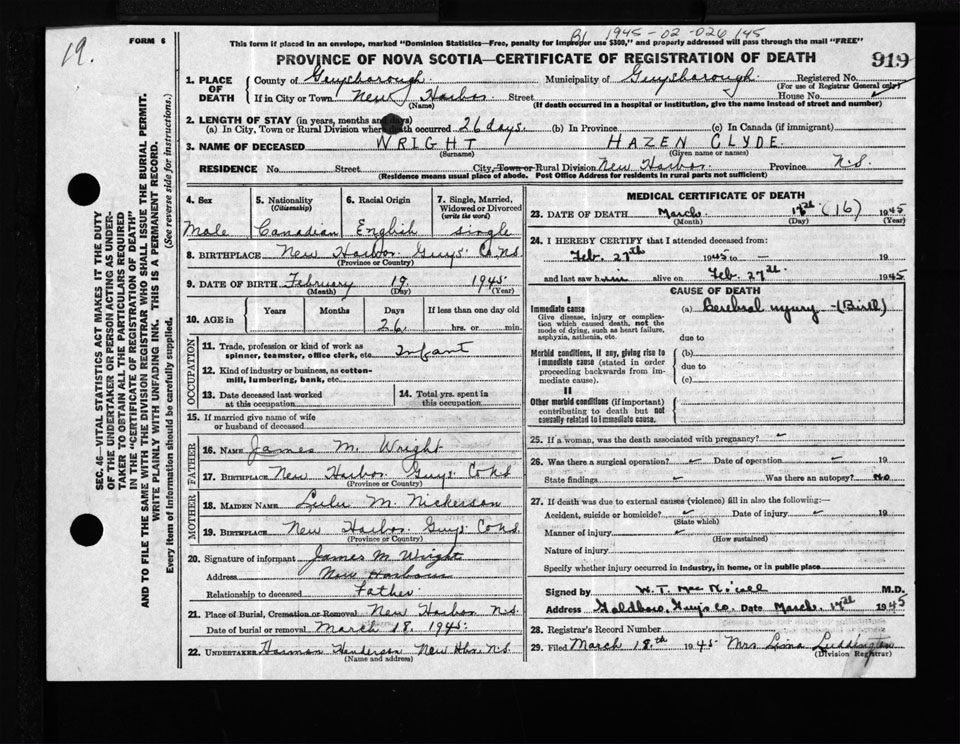 19. FORM 6 B1 1945-02-026145
This form if placed in an envelope, marked "Dominion Statistics—Free, penalty for improper use $300," and properly addressed will pass through the mail "FREE"
PROVINCE OF NOVA SCOTIA—CERTIFICATE OF REGISTRATION OF DEATH 919
1. PLACE OF DEATH
County of Guysborough Municipality of Guysborough Registered No.
(For use of Registrar General only)
If in City or Town New Harbor Street House No.
(Name) (If death occurred in a hospital or institution, give the name instead of street and number)
2. LENGTH OF STAY (in years, months and days)
(a) In City, Town or Rural Division where death occurred 26 days. (b) In Province (c) In Canada (if immigrant)
3. NAME OF DECEASED WRIGHT HAZEN CLYDE
(Surname) (Given name or names)
RESIDENCE No. Street City, Town or Rural Division New Harbor Province N.S.
(Residence means usual place of abode. Post Office Address for residents in rural parts not sufficient)
4. Sex
Male
5. Nationality
(Citizenship)
Canadian
6. Racial Origin
English
7. Single, Married, Widowed or Divorced
(write the word)
single
8. BIRTHPLACE New Harbor Guys. Co. N.S.
(Province or Country)
9. DATE OF BIRTH February 19 1945
(Month) (Day) (Year)
10. AGE in Years Months Days If less than one day old
26 hrs. or min.
OCCUPATION
11. Trade, profession or kind of work as
spinner, teamster, office clerk, etc. Infant
12. Kind of industry or business, as cotton-
mill, lumbering, bank, etc.
13. Date deceased last worked
at this occupation
14. Total yrs. spent in
this occupation
15. If married give name of wife
or husband of deceased
FATHER
16. NAME James M. Wright
17. BIRTHPLACE New Harbor Guys Co N.S
(Province or Country)
MOTHER
18. MAIDEN NAME Lulu M. Nickerson
19. BIRTHPLACE New Harbor Guys Co N.S.
(Province or Country)
20. Signature of informant James M. Wright
Address New Harbour
Relationship to deceased Father
21. Place of Burial, Cremation or Removal New Harbor N.S.
Date of burial or removal March 18, 1945.
22. UNDERTAKER Harmon Henderson New Hbr. N.S.
(Name and address)
MEDICAL CERTIFICATE OF DEATH
23. DATE OF DEATH March (16) 1945
(Month) (Day) (Year)
24. I HEREBY CERTIFY that I attended deceased from:
Feb. 27th 1945 to —
and last saw him alive on Feb. 27th. 1945
CAUSE OF DEATH
I
Immediate cause (a) Cerebral injury - (Birth)
Give disease, injury or complica-
tion which caused death, not the
mode of dying, such as heart failure,
asphyxia, asthenia, etc. due to
Morbid conditions, if any, giving rise to
immediate cause (stated in order
proceeding backwards from im-
mediate cause).
(b)
due to
(c)
II
Other morbid conditions (if important)
contributing to death but not
causally related to immediate cause.
25. If a woman, was the death associated with pregnancy?
26. Was there a surgical operation? Date of operation 19
State findings Was there an autopsy? No
27. If death was due to external causes (violence) fill in also the following:—
Accident, suicide or homicide? Date of injury 19
(State which)
Manner of injury
(How sustained)
Nature of injury
Specify whether injury occurred in industry, in home, or in public place
Signed by M.D.
Address Goldboro, Guys Co. Date March 17th 1945
28. Registrar's Record Number
29. Filed March 18th 1945 Mrs Lima Luddington
(Division Registrar)
SEC. 46—VITAL STATISTICS ACT MAKES IT THE DUTY
OF THE UNDERTAKER OR PERSON ACTING AS UNDER-
TAKER TO OBTAIN ALL THE PARTICULARS REQUIRED
IN THE "CERTIFICATE OF REGISTRATION OF DEATH"
AND TO FILE THE SAME WITH THE DIVISION REGISTRAR WHO SHALL ISSUE THE BURIAL PERMIT.
WRITE PLAINLY WITH UNFADING INK. THIS IS A PERMANENT RECORD.
Every item of information should be carefully supplied. (See reverse side for instructions.)